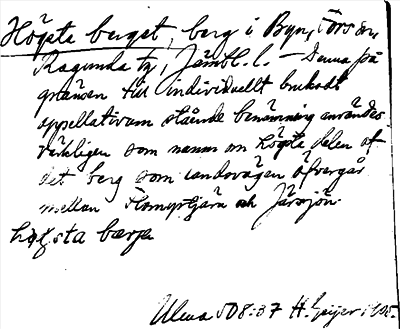 Högsta berget, berg i Byn, Fors sn,
Ragunda tg, Jämtl. l. — Denna på
gränsen till individuellt brukadt
appellativum stående benämning användes
värkligen som namn om högsta delen af
det berg som landsvägen öfvergår
mellan och Järsjön.
högsta bærje
Ulma 508:37 H. Geijer 1908.